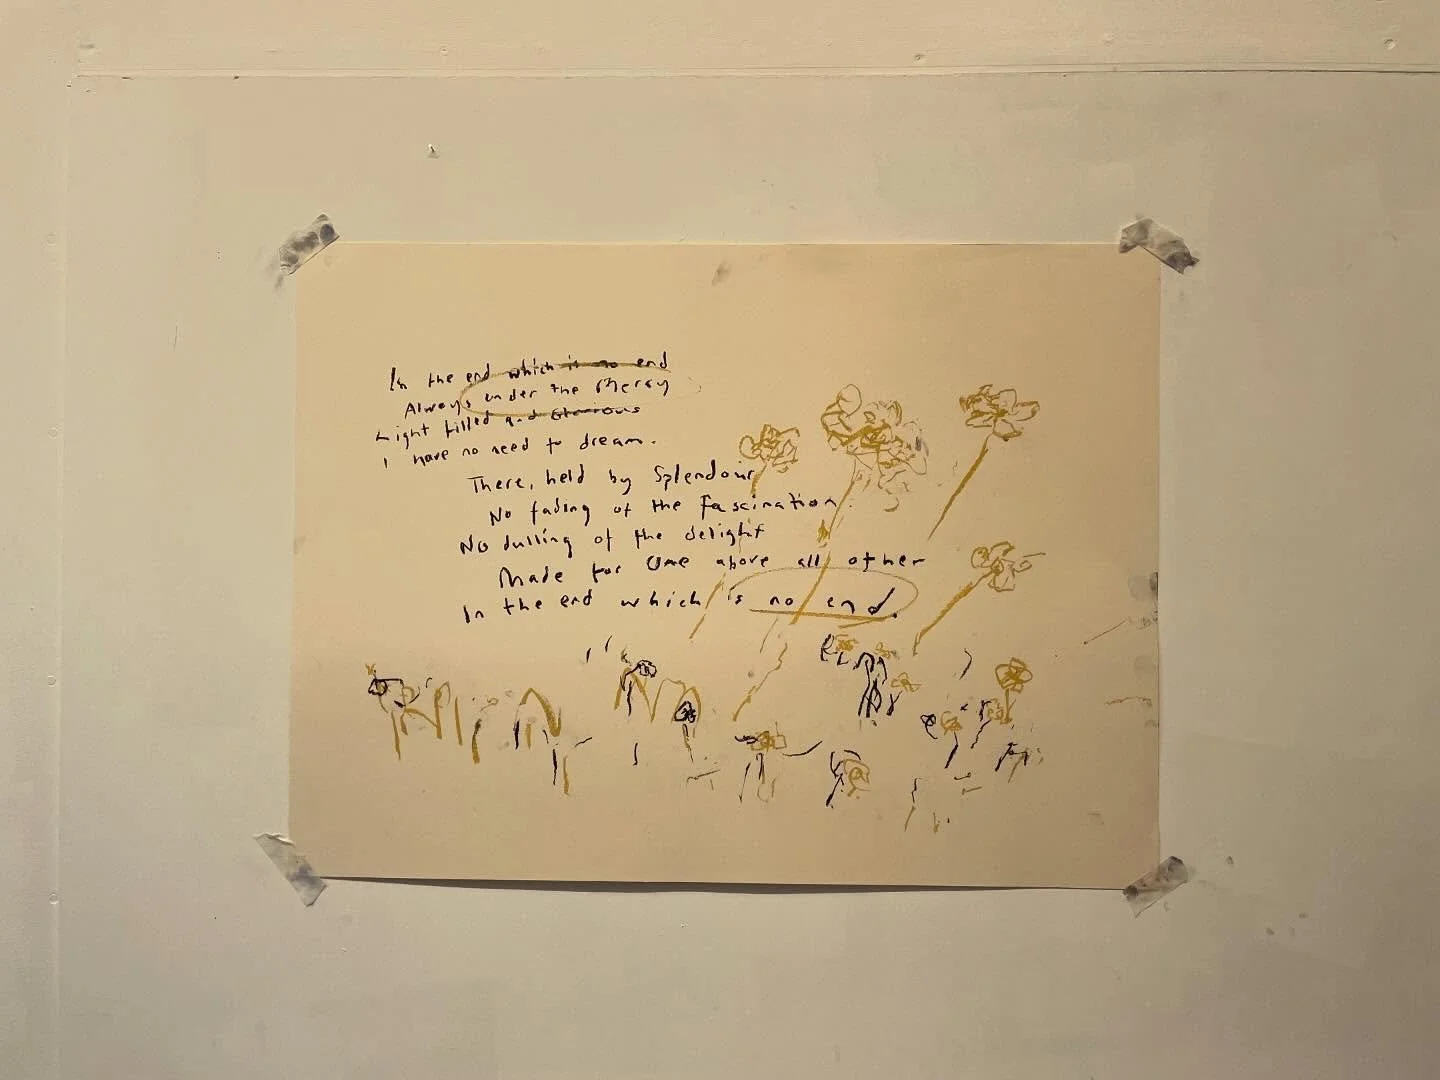 In the end which is no end
Always under the Mercy
Light filled and Glorious
I have no need to dream.
There, held by Splendour
No fading of the fascination.
No dulling of the delight
Made for One above all other
In the end which is no end.